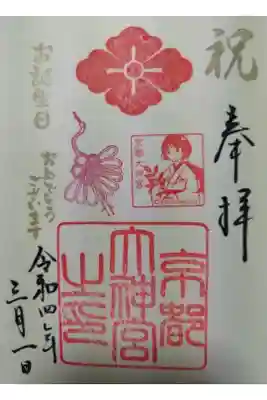 祝
奉拝
京都
大神宮
之印
京都
大神宮
お誕生日
おめでとう
ございます
令和四年
三月一日